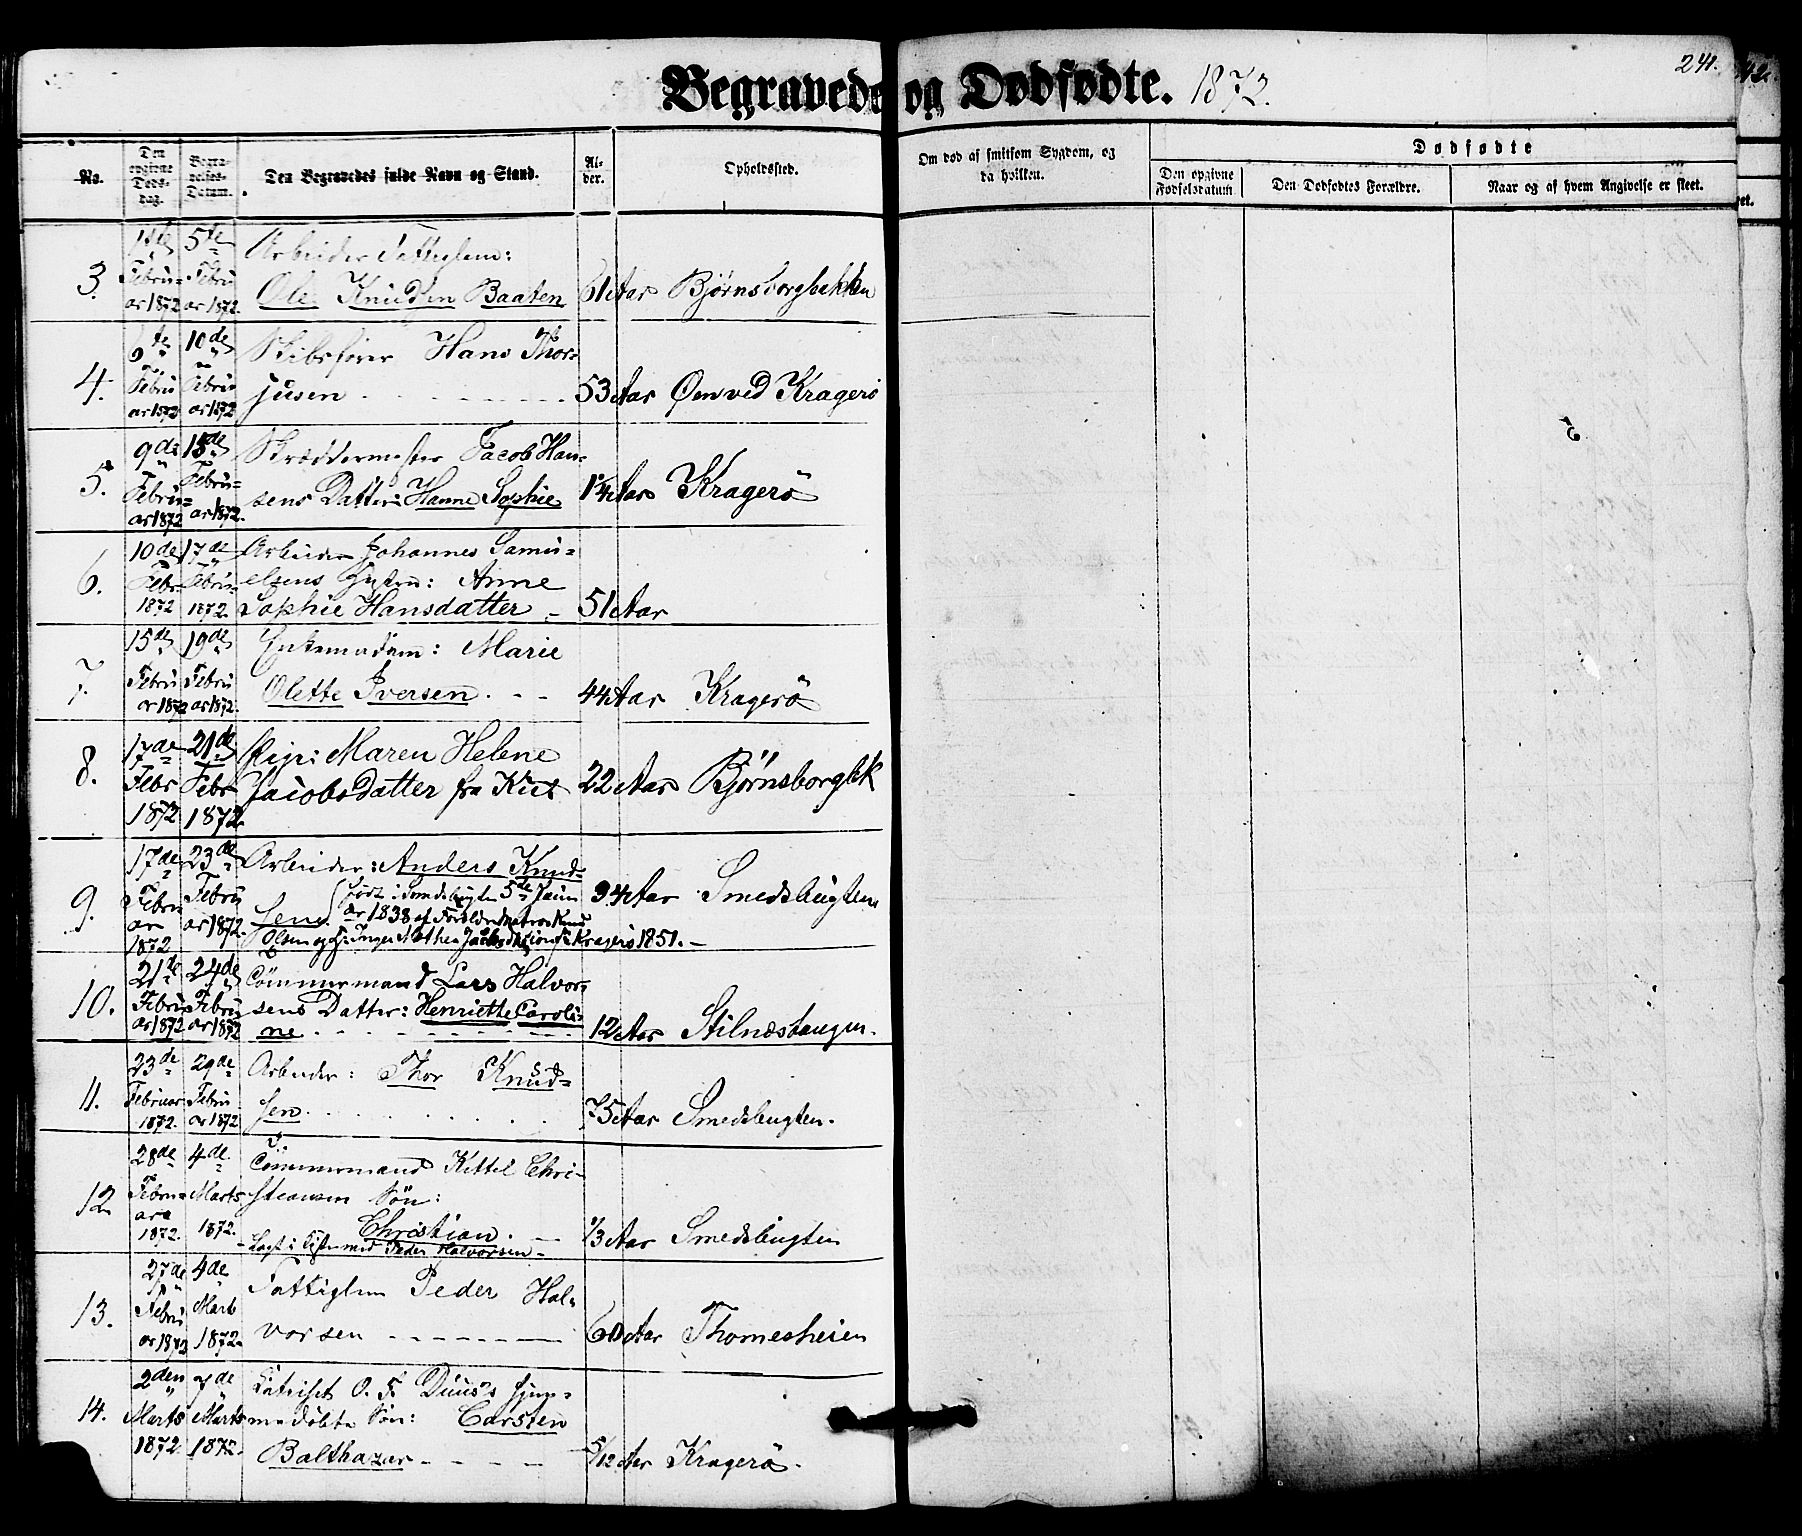 Begravede og Dødfødte. 1872.
241.
No.
Den opgivne Døds-dag.
Begra-velses-Datum.
Den Begravedes fulde Navn og Stand.
Al-der.
Opholdssted.
Om død af smitsom Sygdom, og da hvilken.
Dødfødte
Den opgivne Fødselsdatum.
Den Dødfødtes Forældre.
Naar og af hvem Angivelse er skeet.
3.
1ste Februar 1872
5te Februar 1872.
Arbeider Fattiglem:
Ole Knudsen Baaten
61 Aar
Bjørnsborgbekken
4.
6te Februar 1872
10de Februar 1872
Skibsfører Hans Thor-
jusen
53 Aar
Øen ved Kragerö
5.
9de Februar 1872
15de Februar 1872.
Skræddermester Jacob Han-
sens Datter: Hanne Sophie
Aar
Kragerö
6.
10de Febr 1872
17de Febru- 1872.
Arbeider Johannes Samu-
elsens Hustru: Anne
Sophie Hansdatter
51 Aar
7.
15de Februar 1872
19de Februar 1872.
Enkemadam: Marie
Olette Iversen
44 Aar
Kragerö
8.
17de Febr 1872
21de Febr 1872
Pige: Maren Helene
Jacobsdatter fra
22 Aar
Bjørnsborgbk
9.
17de Februar 1872
23de Februar 1872.
Arbeider: Anders Knud-
sen. født i Smedsbugten 5te Janu
ar 1838 af Forældre Matros Knud
Olsen og H: Inger
Kragerö 1851.
34 Aar
Smedsbugten
10.
21de Februar 1872
24de Februar 1872
Tømmermand Lars Halvor-
sens Datter: Henriette Caroli-
ne
12 Aar
Stilnæstangen.
11.
23de Februar 1872.
29de Februar 1872
Arbeider: Thor Knud-
sen
75 Aar
Smedsbugten.
12
28de Februar 1872.
4de Marts 1872.
Tømmermand Kittel Chri-
stiansen Søn:
Christian.
- Lagt i Kiste med Peder Halvorsen -
1/3 Aar
Smedsbugten
13.
27de Februar 1872
4de Marts 1872.
Fattiglem Peder Hal-
vorsen
60 Aar
Thomesheien
14.
2den Marts 1872
7de Marts 1872.
O. F. Duus's hjem-
medøbte Søn: Carsten
Balthazar
5/12 Aar
Kragerö.